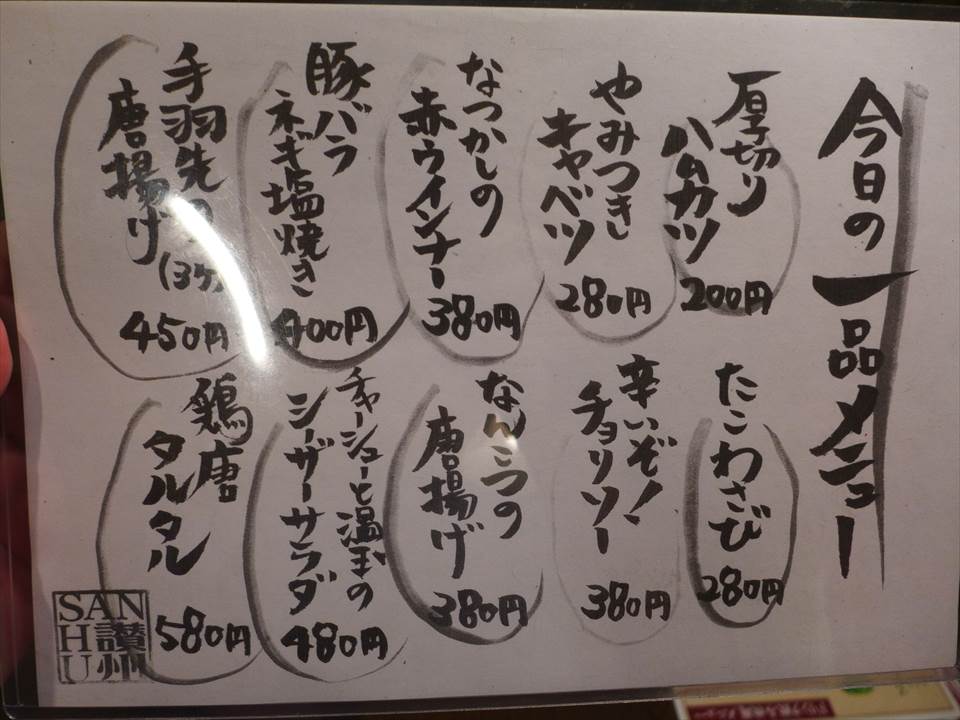 今日の一品メニュー
厚切り
ハムカツ
200円
やみつきし
キャベツ
280円
なつかしの
赤ウインナー
380円
豚バラ
ネギ塩焼き
400円
手羽先の
唐揚げ
(3ケ)
450円
たこわさび
280円
辛いぞ!
チョリソー
380円
なんこつの
唐揚げ
380円
チャーシューと温玉の
シーザーサラダ
480円
鶏唐
タルタル
580円
SAN
H讃
U州